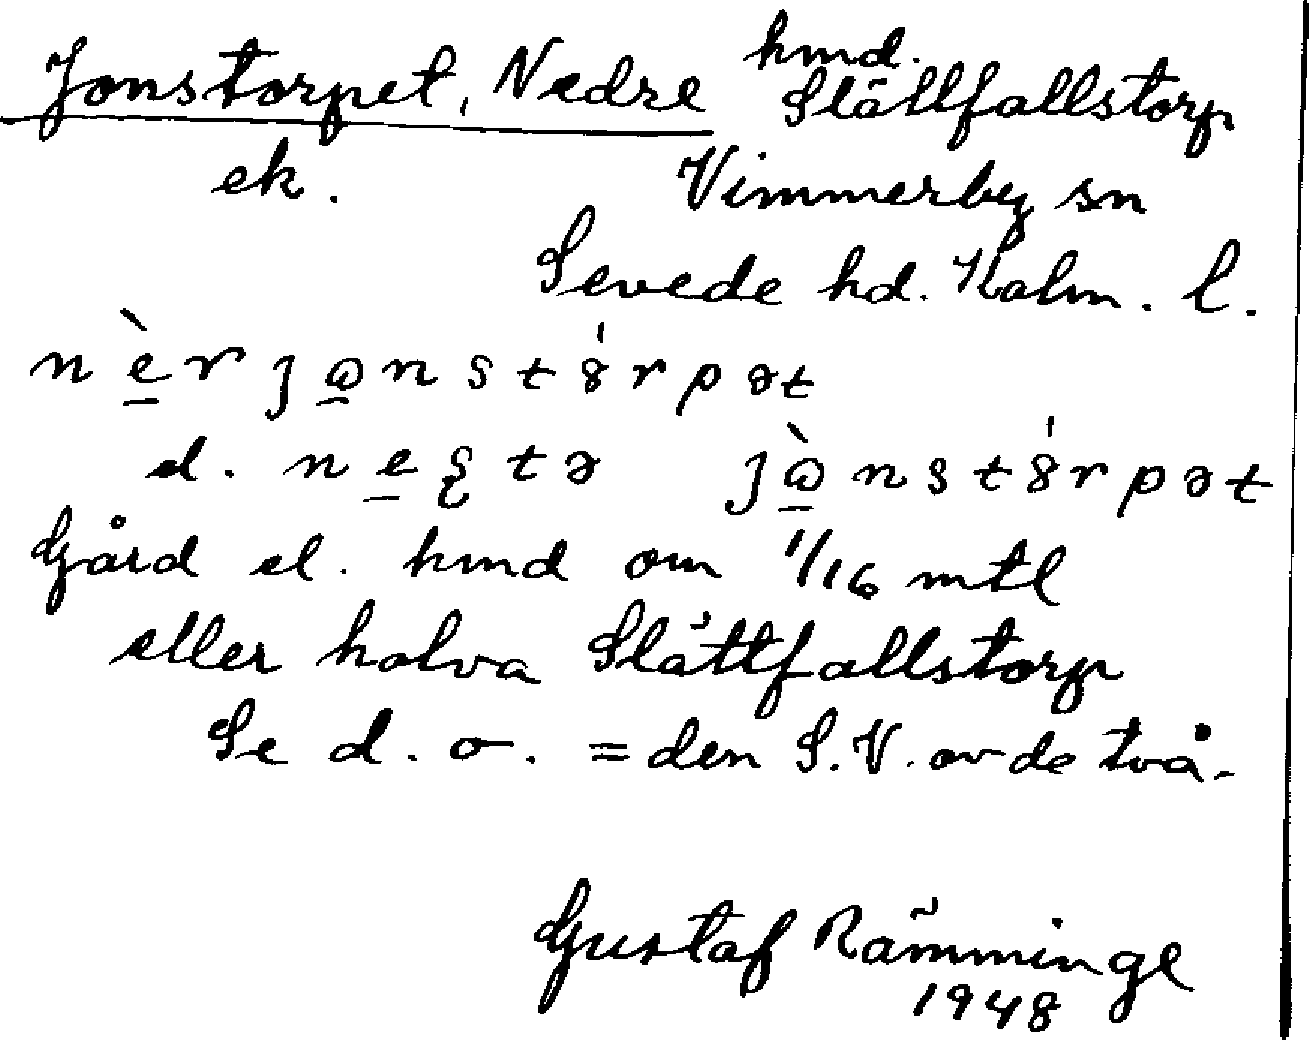 Jonstorpet, Nedre hmd. Slättfallstorp
ek. Vimmerby sn
Sevede hd. Kalm. l.
el.
Gård el. hmd om 1/16 mtl
eller halva Slättfallstorp
Se d. o. = den S.V. av de två.
Gustaf Rämminge
1948